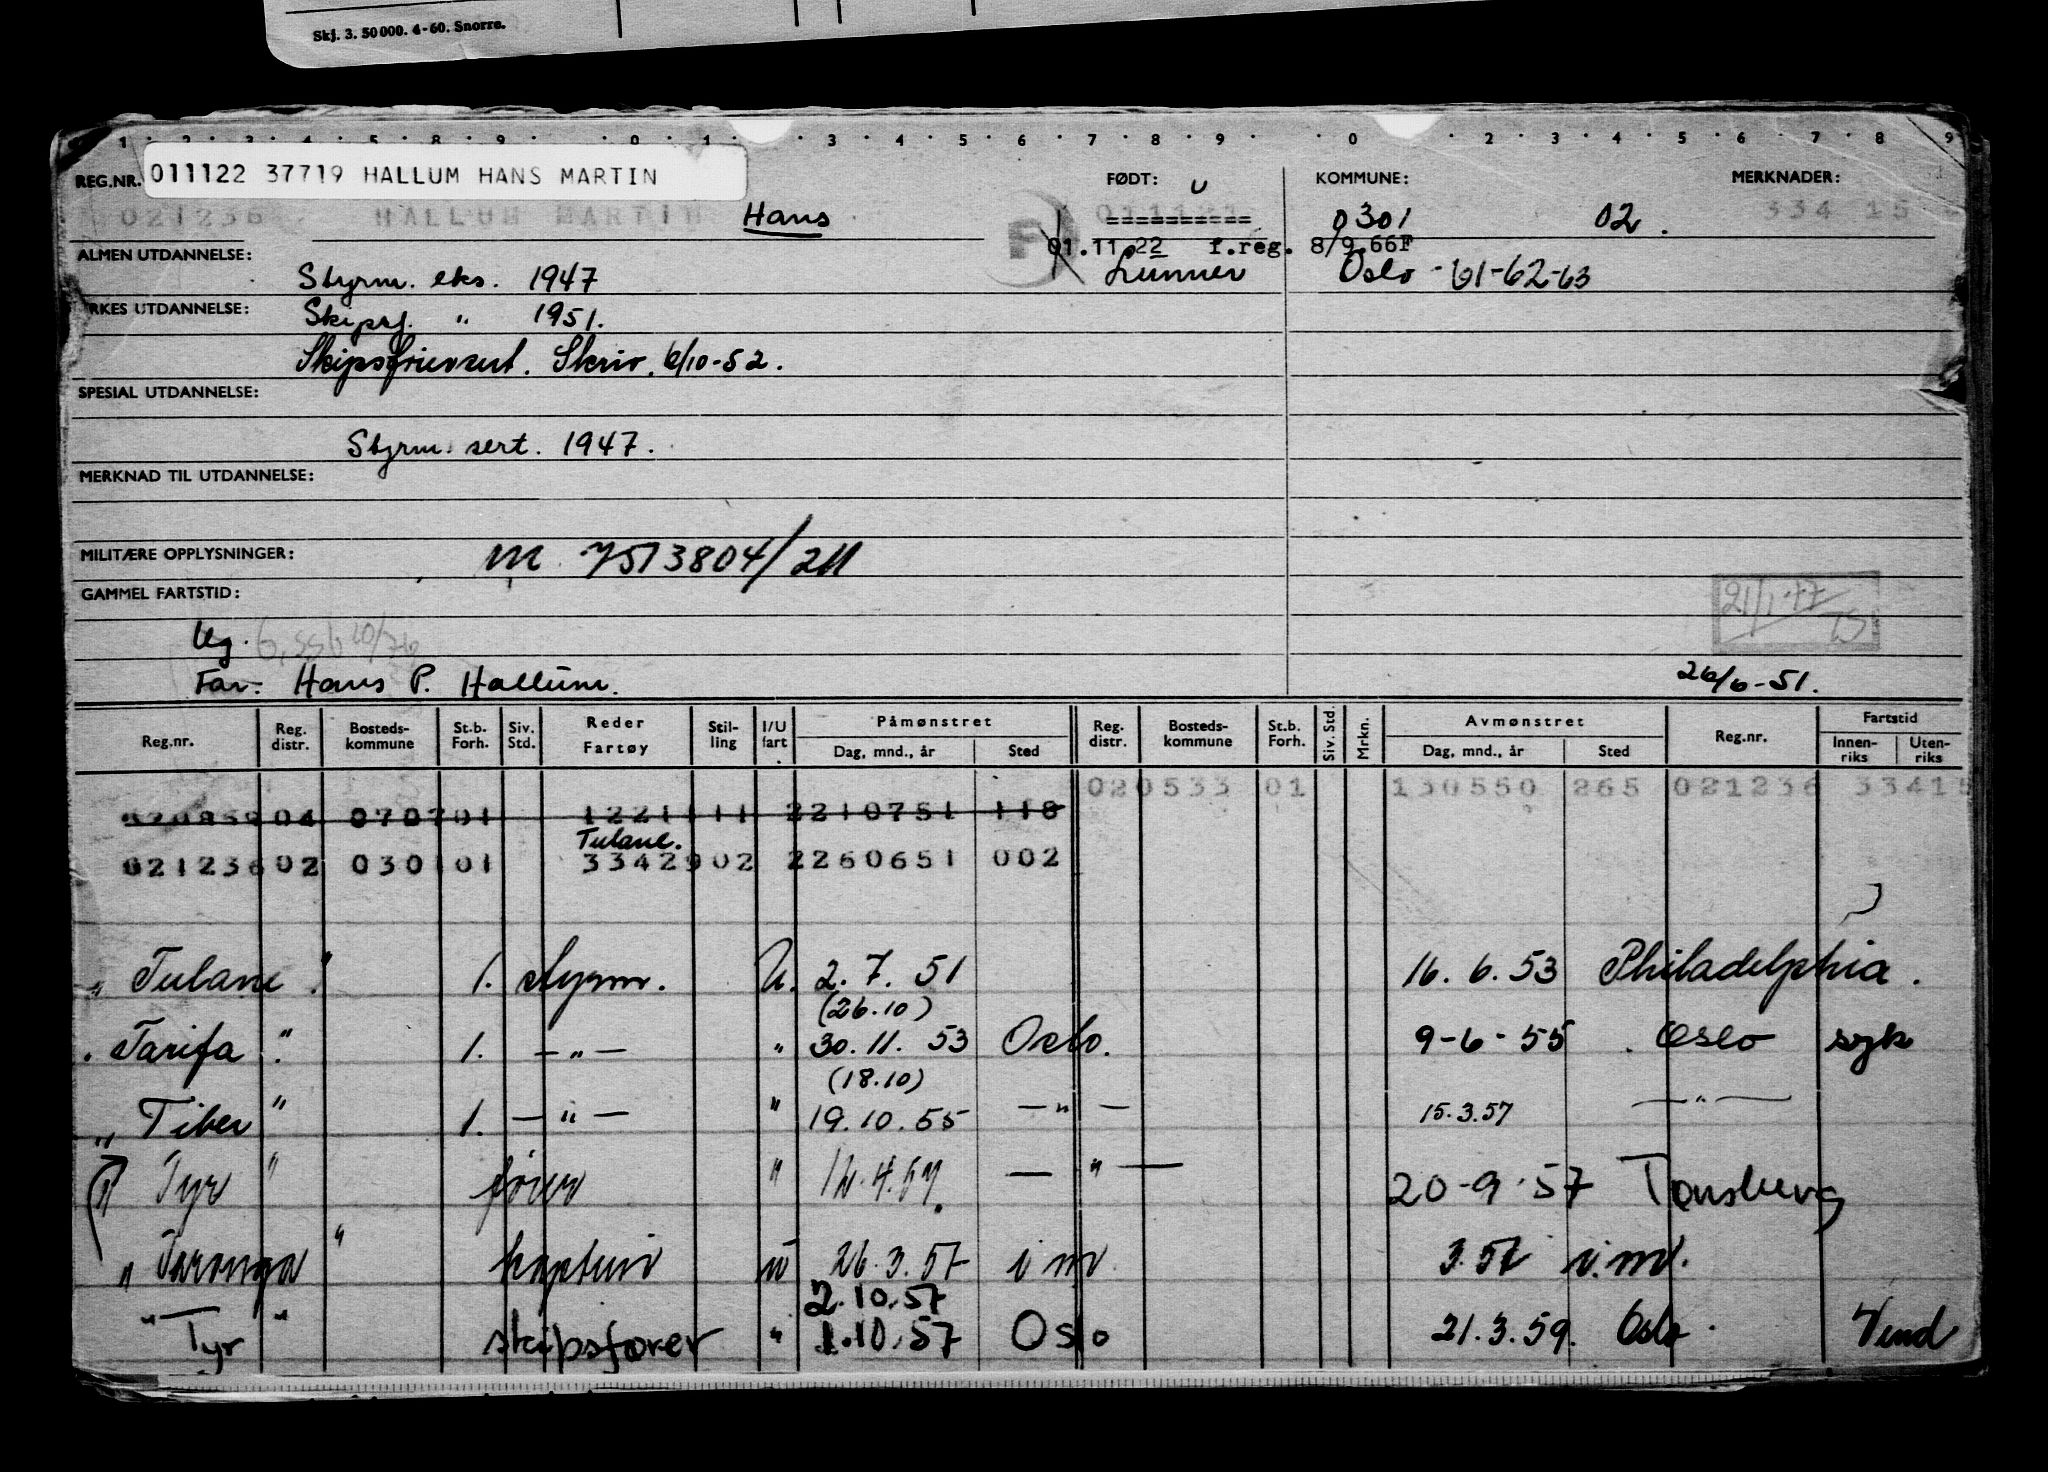 Skj. 3. 50 000. 4-60. Snorre.
1 2 3 4 5 8 9 0 1 3 4 5 6 7 8 9 0 2 3 4 5 6 7 8 9
REG.NR. 011122 37719 HALLUM HANS MARTIN FØDT: KOMMUNE: MERKNADER:
021236 HALLUM MARTIN Hans 0301 02. 334 15
01.11.22 f.reg. 8/9.66F
ALMEN UTDANNELSE: Styrm. eks. 1947 Lunner Oslo -61-62-63
RKES UTDANNELSE: Skipsf. " 1951.
Skipsförersert. Skriv. 6/10-52.
SPESIAL UTDANNELSE:
Styrm. sert. 1947.
MERKNAD TIL UTDANNELSE:
MILITÆRE OPPLYSNINGER: M 7513804/211
GAMMEL FARTSTID: 21/1-77
Ug.
Far: Hans P. Hallum. 26/6-51.
Reg.nr. Reg. distr. Bosteds-kommune St.b. Forh. Siv. Std. Reder Fartøy Stil-ling I/U fart Påmønstret Dag, mnd., år Sted Reg. distr. Bosteds-kommune St.b. Forh. Siv. Std. Mrkn. Avmønstret Dag, mnd., år Sted Reg.nr. Fartstid Innen-riks Uten-riks
020533 01 130550 265 021236 33415
04 070701 1221111 2210751 118
Tulane.
021236 02 030101 3342902 2260651 002
" Tulane " 1. styrm. U. 2.7.51 16.6.53 Philadelphia.
(26.10)
" Tarifa " 1. -"- " 30.11.53 Oslo. 9-6-55 Oslo syk
(18.10)
" Tiber " 1. -"- " 19.10.55 -"- 15.3.57 -"-
" Tyr " fører " 12.4.57. -"- 20-9-57 Tønsberg
" Taronga " kaptein u 26.3.57 i nv. 3.57 i.nv.
2.10.57
" Tyr " skipsfører " 1.10.57 Oslo 21.3.59. Oslo. Vend